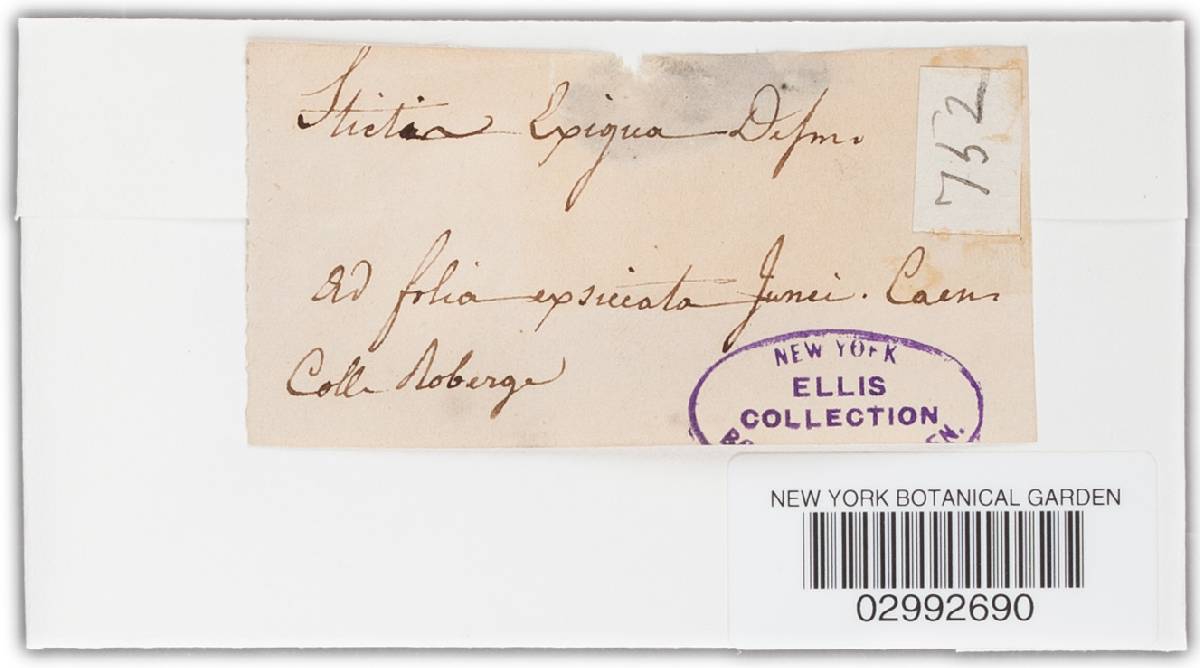 Stictis Exigua Desm.
752
ad folia exsiccata Junci. Caen.
Coll. Roberge
NEW YORK
ELLIS
COLLECTION
NEW YORK BOTANICAL GARDEN
02992690